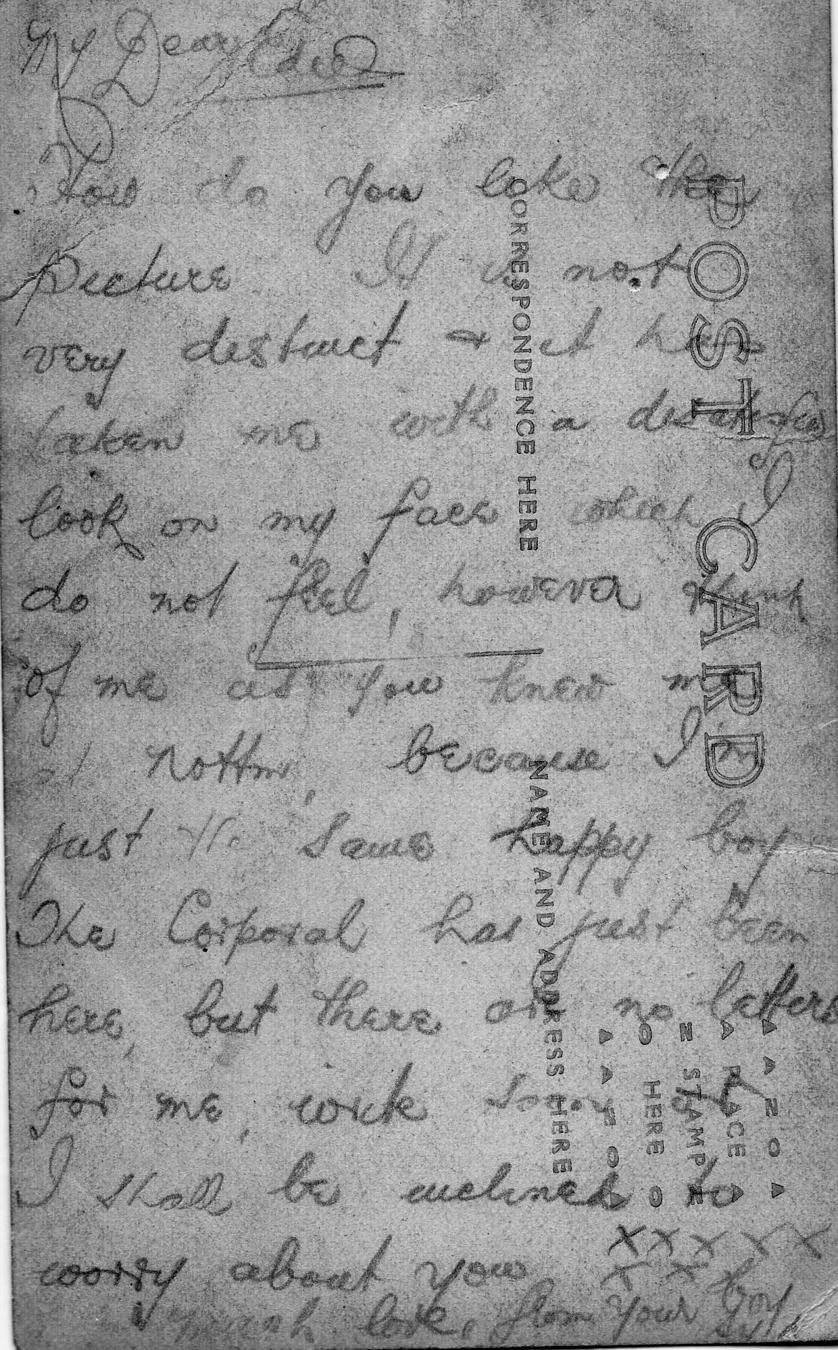 My Dear Edie
How do you like the
picture It is not
very distinct & it has
taken me with a dissatisfied
look on my face which I
do not feel, however think
of me as you knew me
at Nottm, because I'm
just the same happy boy
The Corporal has just been
here, but there are no letters
for me, write soon or
I shall be inclined to
worry about you xxxxx
xxx
much love, from your boy
POST CARD
CORRESPONDENCE HERE
NAME AND ADDRESS HERE
PLACE
STAMP
HERE